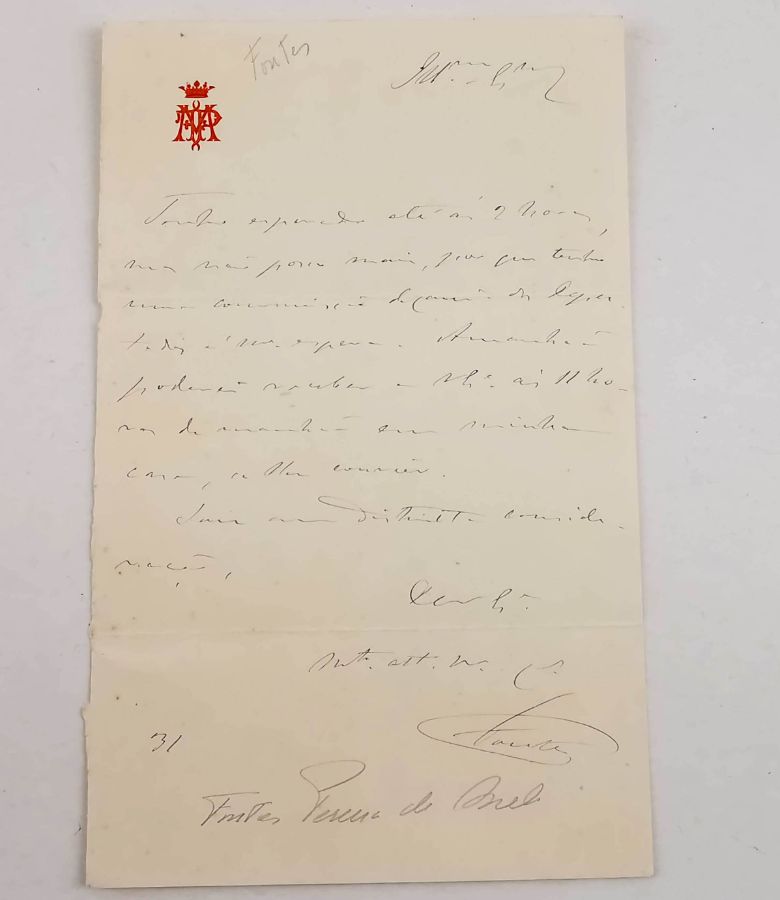 Fontes
Ill.mo Sr.
Tenho esperado até ás 2 horas,
mas não posso mais, por que tenho
uma commissão da camara dos Depu-
tados á m.a espera. Amanhã
poderei receber a V. Ex.a ás 11 ho-
ras da manhã em minha
casa, se lhe convier.
Sou com distincta conside-
ração,
De V. Ex.a
Mt.o att.o V.
Fontes
31
Fontes Pereira de Mel